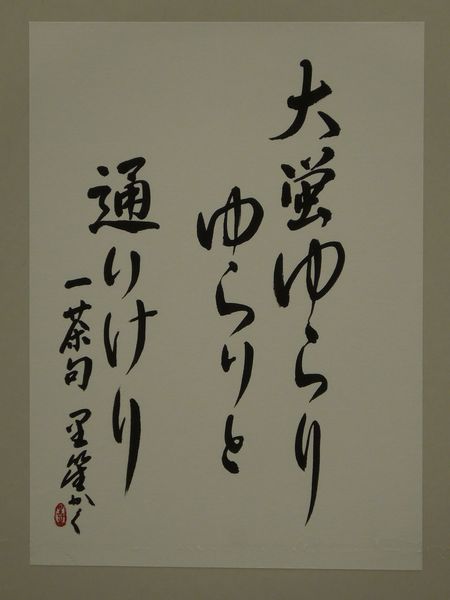 大蛍ゆらり
ゆらりと
通りけり
一茶句 里笙かく